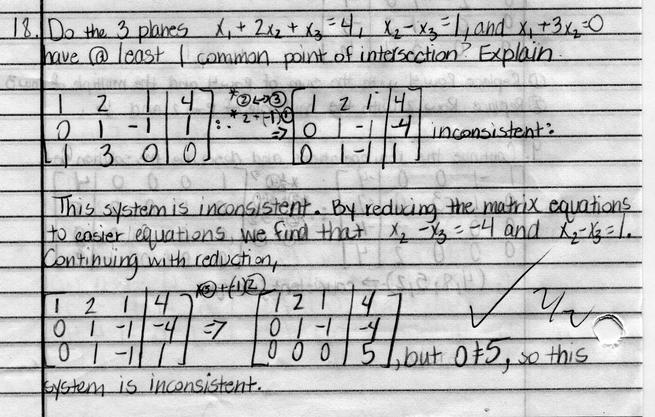 18. Do the 3 planes x₁ + 2x₂ + x₃ = 4, x₂ - x₃ = 1, and x₁ + 3x₂ = 0
have @ least 1 common point of intersection? Explain.
1 2 1 | 4 *②↔③ 1 2 1 | 4
0 1 -1 | 1 ∴ *2+(-1)① ⇒ 0 1 -1 | -4 inconsistent:
1 3 0 | 0 0 1 -1 | 1
This system is inconsistent. By reducing the matrix equations
to easier equations we find that x₂ - x₃ = -4 and x₂ - x₃ = 1.
Continuing with reduction,
1 2 1 | 4 *③+(-1)② 1 2 1 | 4
0 1 -1 | -4 ⇒ 0 1 -1 | -4 2/2
0 1 -1 | 1 0 0 0 | 5 , but 0≠5, so this
system is inconsistent.